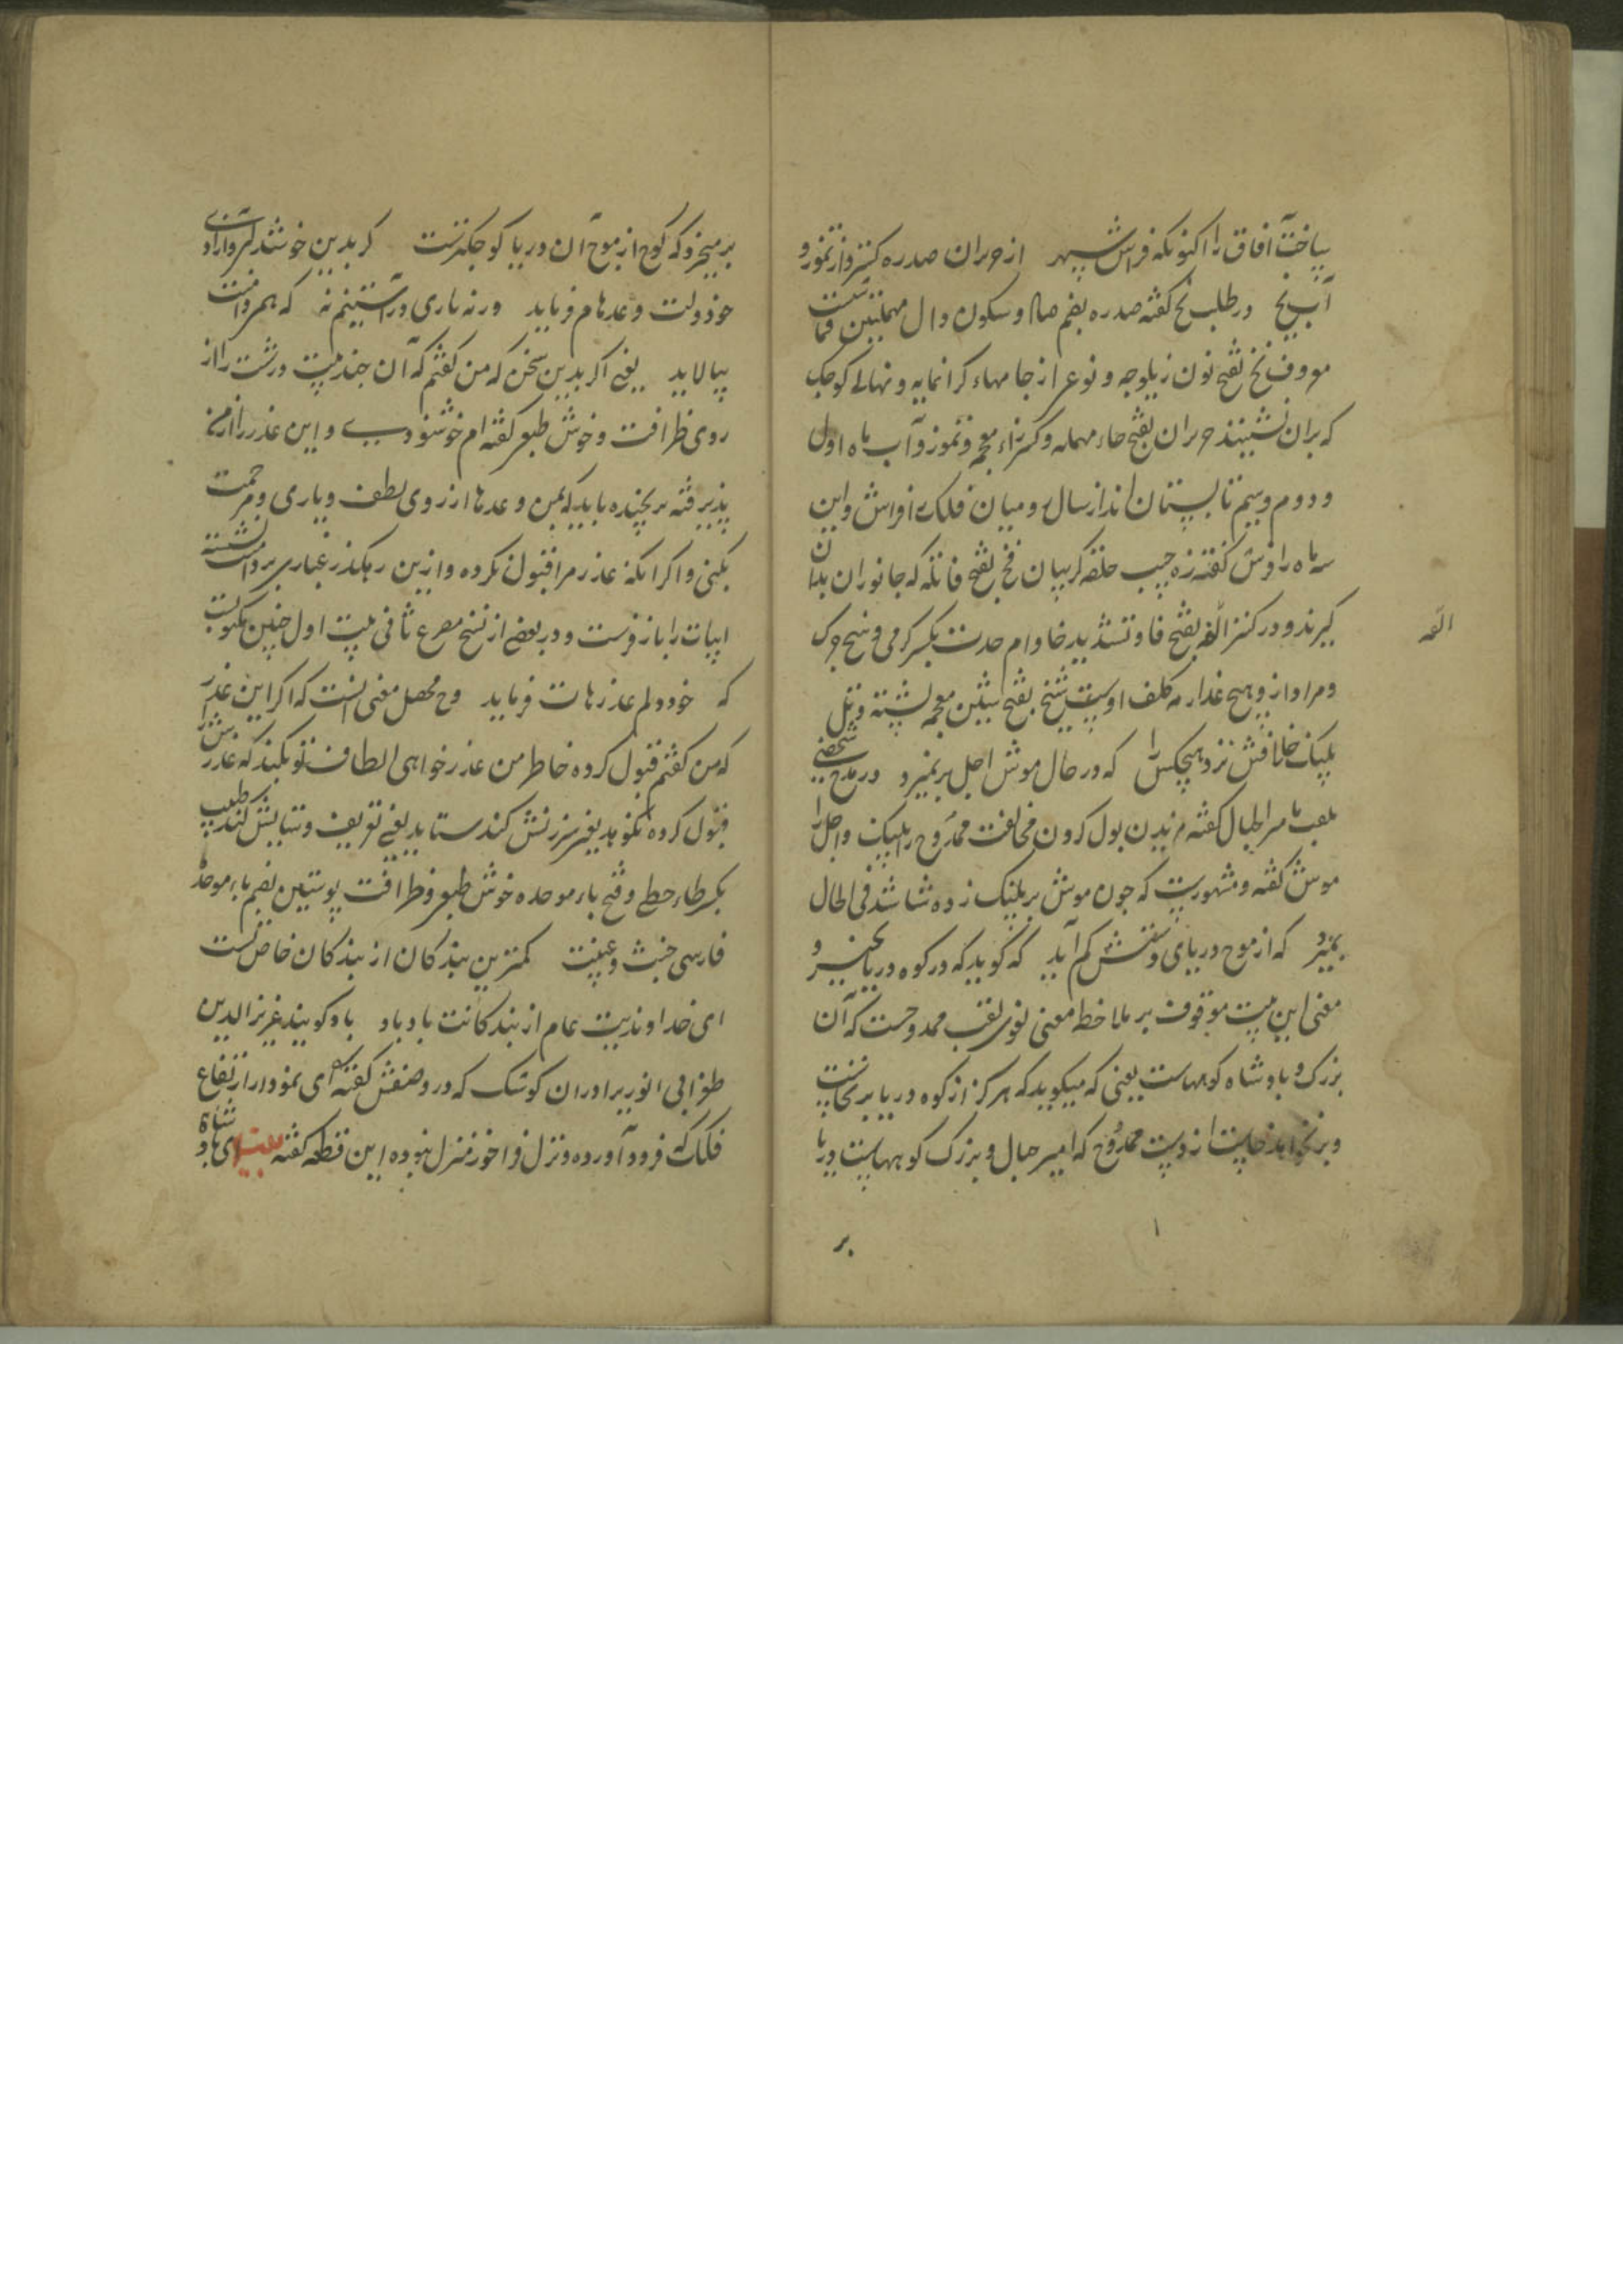 ساخت آفاق را اکنونکه فراش سپهر از حزیران صدره کسترد از تموز و
آب نخ در طلب نخ کفته صدره بضم صاد وسکون دال مهملتین قماشیست
معروف نخ بفتح نون زیلوجه و نوعی از جامهاء کرانمایه و نهالی کوجک
که بران نشینند حزیران بفتح حاء مهمله وکسر زاء معجمه و تموز و آب ماه اول
و دوم وسیم تابستان اند از سال رومیان فلک را فراش و این
سه ماه را فرش کفته زه جیب حلقه کریبان فخ بفتح فا تله که جانوران بدان
کیرند و در کنز اللغه بفتح فا و تشدید خا دام حدت بکسر کرمی وسخ چرک
و مراد از هیچ عذار مه کلف اوست شخ بفتح شین معجمه پشته و تل
پلنک خلافش نزد هیچکس را که در حال موش اجل بر نمیزد در مدح شخصی
ملقب بامیر الجبال کفته میزیدن بول کردن مخالفت ممدوح را پلنک و اجل را
موش کفته و مشهورست که جون موش بر پلنک زده شاشد فی الحال
بمیرد که از موج دریای دستش کم آید که کوید که در کوه دریا نخیزد
معنی این بیت موقوف بر ملاحظه معنی لغوی لقب ممدوحست که آن
بزرک و بادشاه کوههاست یعنی که میکوید که هرکز از کوه دریا برنخاست
و برنخواهد خاست از دست ممدوح که امیر جبال و بزرک کوههاست دریا
بر
اللغه
بر میخیزد که کوج از موج آن دریا کوجکترست کر بدین خوشدلی و آزادی
خود دولت وعدهام فرماید ور نه باری در آستینم نه که همی دامنت
بیالاید یعنی اکر بدین سخن که من کفتم که آن چند بیت درشت را از
روی ظرافت و خوش طبعی کفته ام خوشنودی و این عذر را از من
پذیرفته نرنجیده باید که بمن وعدها از روی لطف و یاری و مرحمت
بکنی و اکر انکه عذر مرا قبول نکرده و ازین رهکذر غباری بر دامنت نشسته
ابیات را باز فرست و در بعضی از نسخ مصرع ثانی بیت اول چنین مکتوبست
که خود دلم عذرهات فرماید و ح محصل معنی انست که اکر این عذر
که من کفتم قبول کرده خاطر من عذرخواهی الطاف تو بکند که عذرش را
قبول کرده نکوهد یعنی سرزنش کند ستاید یعنی تعریف و ستایش کند طیب
بکسر طاء حطی و فتح باء موحده خوش طبعی و ظرافت پوستین بضم باء موحده
فارسی خبث و غیبت کمترین بندکان از بندکان خاص تست
ای خداوندیت عام از بندکانت باد باد کویند عزیز الدین
طغرایی انوری را دران کوشک که در وصفش کفته ای نمودار ارتفاع
فلک فرود آورده و نزل فراخور منزل نبوده این قطعه کفته بیت ای شاه